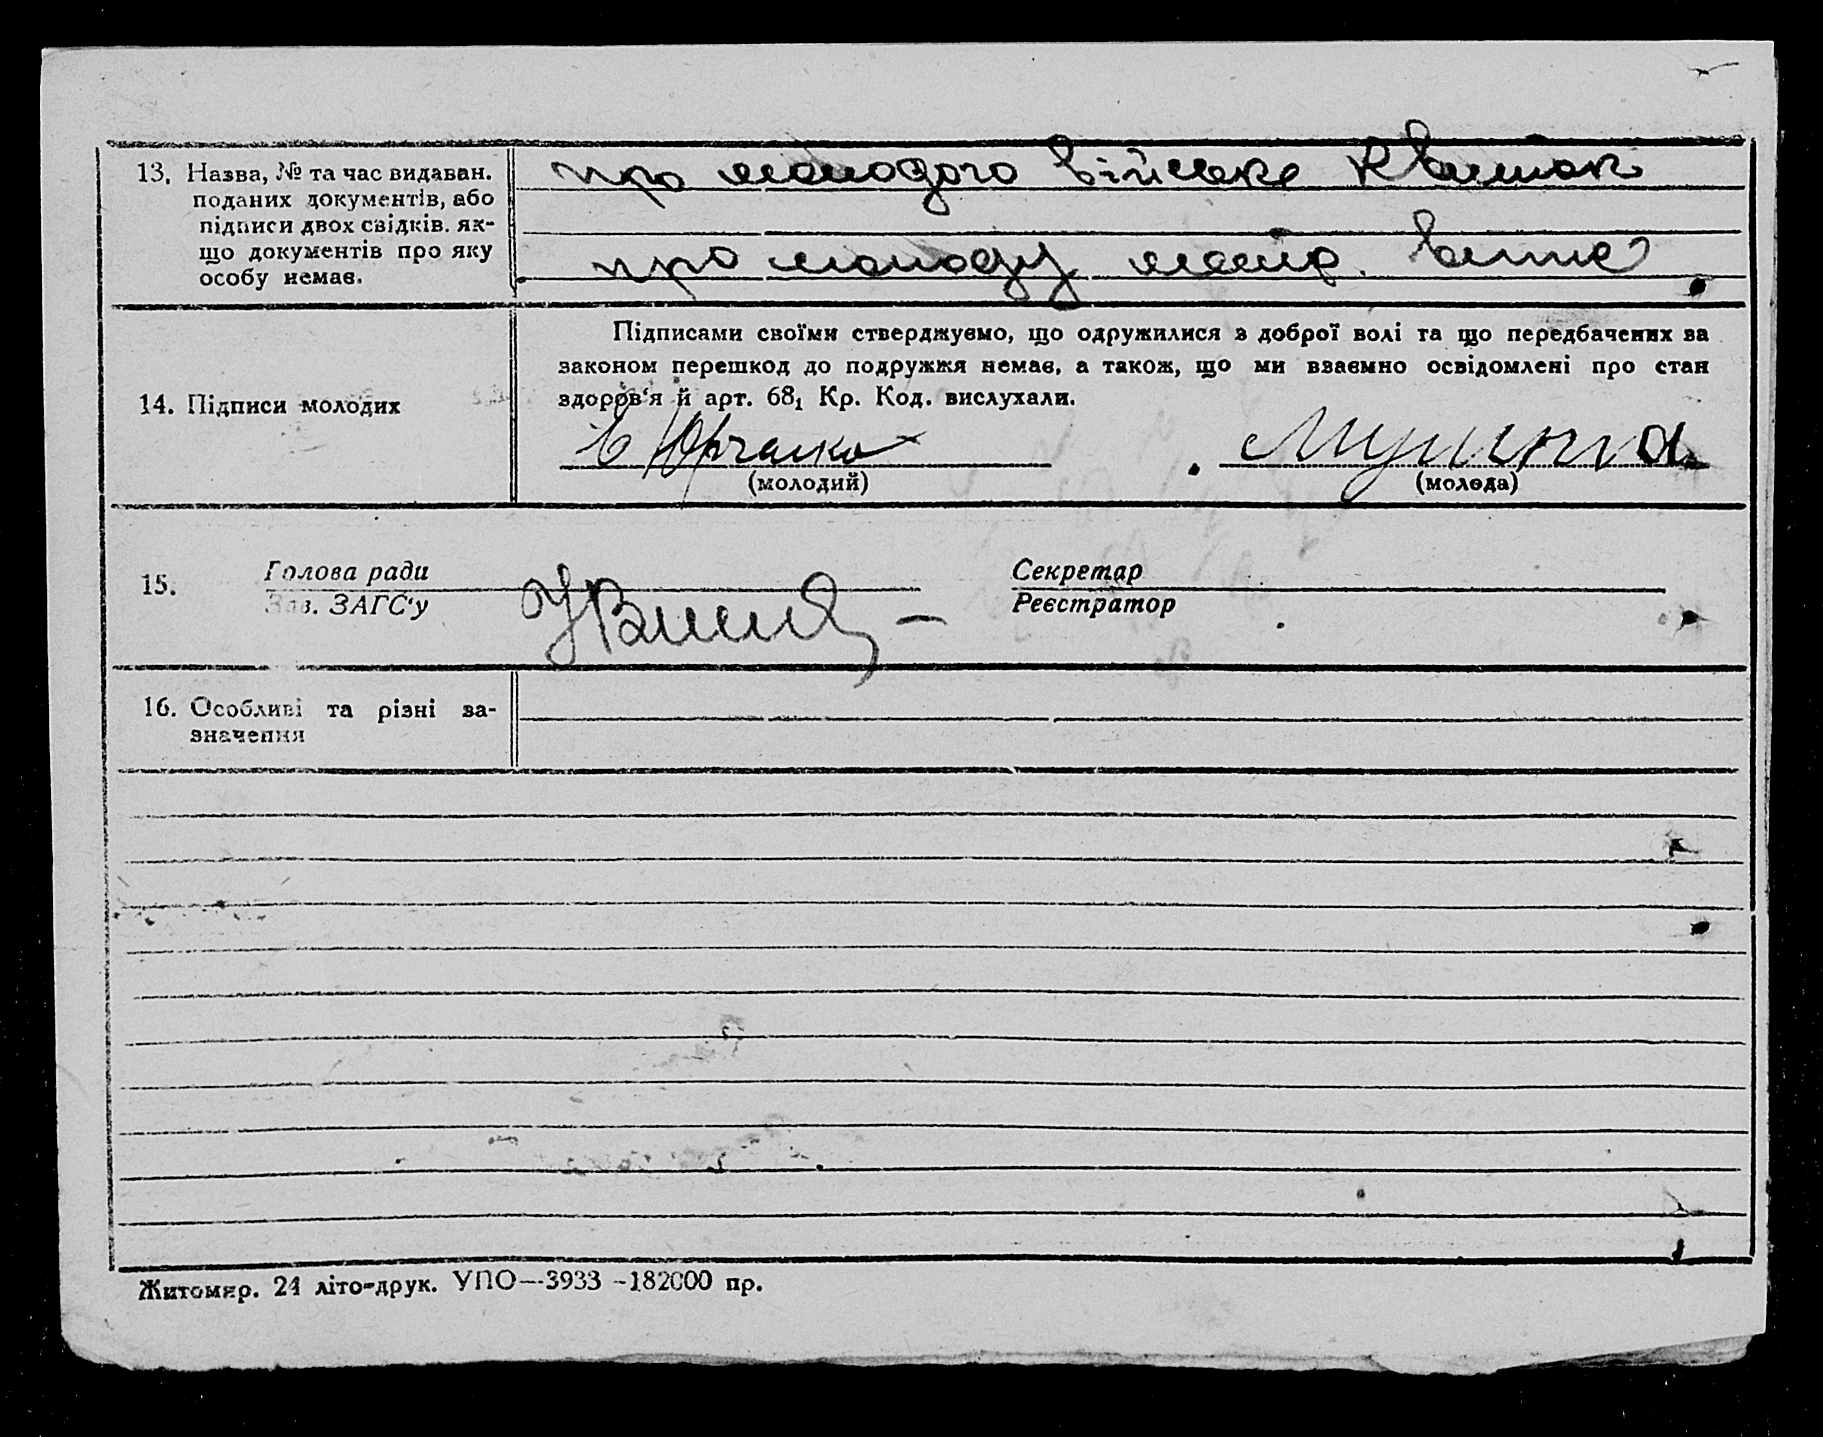 13. Назва, № та час видаван.
поданих документів, або
підписи двох свідків. як-
що документів про яку
особу немає.
про молодого військ квиток
про молоду метр. витяг
14. Підписи молодих
Підписами своїми стверджуємо, що одружилися з доброї волі та що передбачених за
законом перешкод до подружжя немає, а також, що ми взаємно освідомлені про стан
здоров'я й арт. 68₁ Кр. Код. вислухали.
Юрченко
(молодий)
(молода)
15.
Голова ради
Зав. ЗАГС'у
Секретар
Реєстратор
16. Особливі та різні за-
значення
Житомир. 24 літо-друк. УПО—3933 -182000 пр.